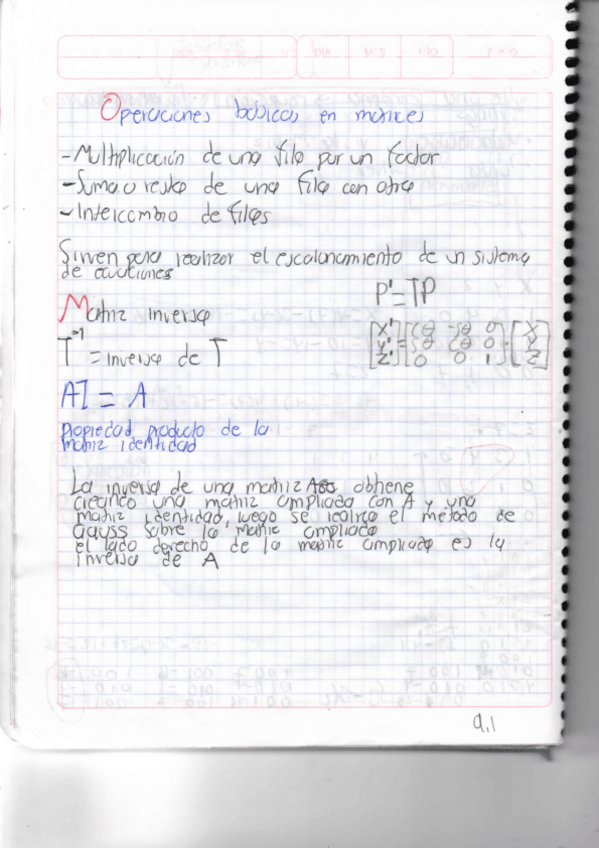 Operaciones básicas en matrices
-Multiplicación de una fila por un factor
-Suma o resta de una fila con otra
-Intercambio de filas
Sirven para realizar el escalonamiento de un sistema
de ecuaciones
P'=TP
Matriz inversa
T⁻¹ = inversa de T
[X' Y' Z'] = [Cθ -Sθ 0
Sθ Cθ 0
0 0 1] · [X Y Z]
AI = A
Propiedad producto de la
matriz identidad
La inversa de una matriz A se obtiene
creando una matriz ampliada con A y una
matriz identidad, luego se realiza el método de
Gauss sobre la matriz ampliada
el lado derecho de la matriz ampliada es la
inversa de A
9.1